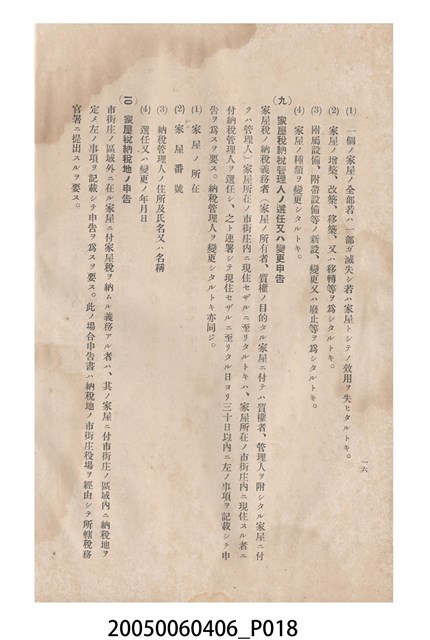 (1) 一個ノ家屋ノ全部若ハ一部ガ滅失シ若ハ家屋トシテノ效用ヲ失ヒタルトキ。
(2) 家屋ノ增築、改築、移築、又ハ移轉等ヲ爲シタルトキ。
(3) 附屬設備、附帶設備等ノ新設、變更又ハ廢止等ヲ爲シタルトキ。
(4) 家屋ノ種類ヲ變更シタルトキ。
(九) 家屋稅納稅管理人ノ選任又ハ變更申告
家屋稅ノ納稅義務者(家屋ノ所有者、質權ノ目的タル家屋ニ付テハ質權者、管理人ヲ附シタル家屋ニ付
テハ管理人)家屋所在ノ市街庄內ニ現住セザルニ至リタルトキハ、家屋所在ノ市街庄內ニ現住スル者ニ
付納稅管理人ヲ選任シ、之ト連署シテ現住セザルニ至リタル日ヨリ三十日以內ニ左ノ事項ヲ記載シテ申
告ヲ爲スヲ要ス。納稅管理人ヲ變更シタルトキ亦同ジ。
(1) 家屋ノ所在
(2) 家屋番號
(3) 納稅管理人ノ住所及氏名又ハ名稱
(4) 選任又ハ變更ノ年月日
(一〇) 家屋稅納稅地ノ申告
市街庄ノ區域外ニ在ル家屋ニ付家屋稅ヲ納ムル義務アル者ハ、其ノ家屋ニ付市街庄ノ區域內ニ納稅地ヲ
定メ左ノ事項ヲ記載シテ申告ヲ爲スヲ要ス。此ノ場合申告書ハ納稅地ノ市街庄役場ヲ經由シテ所轄稅務
官署ニ提出スルヲ要ス。
一六
20050060406_P018